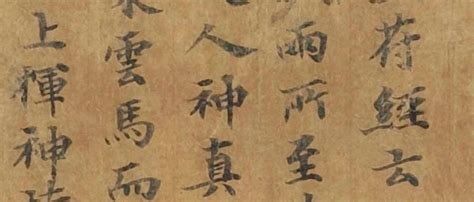 苻經云
雨所至
人神真
雲馬而
上揮神